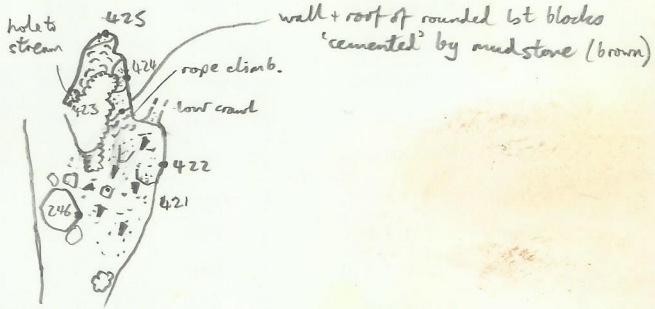 425
hole to
stream
wall + roof of rounded lst blocks
'cemented' by mudstone (brown)
424
rope climb.
423
low crawl
422
421
246